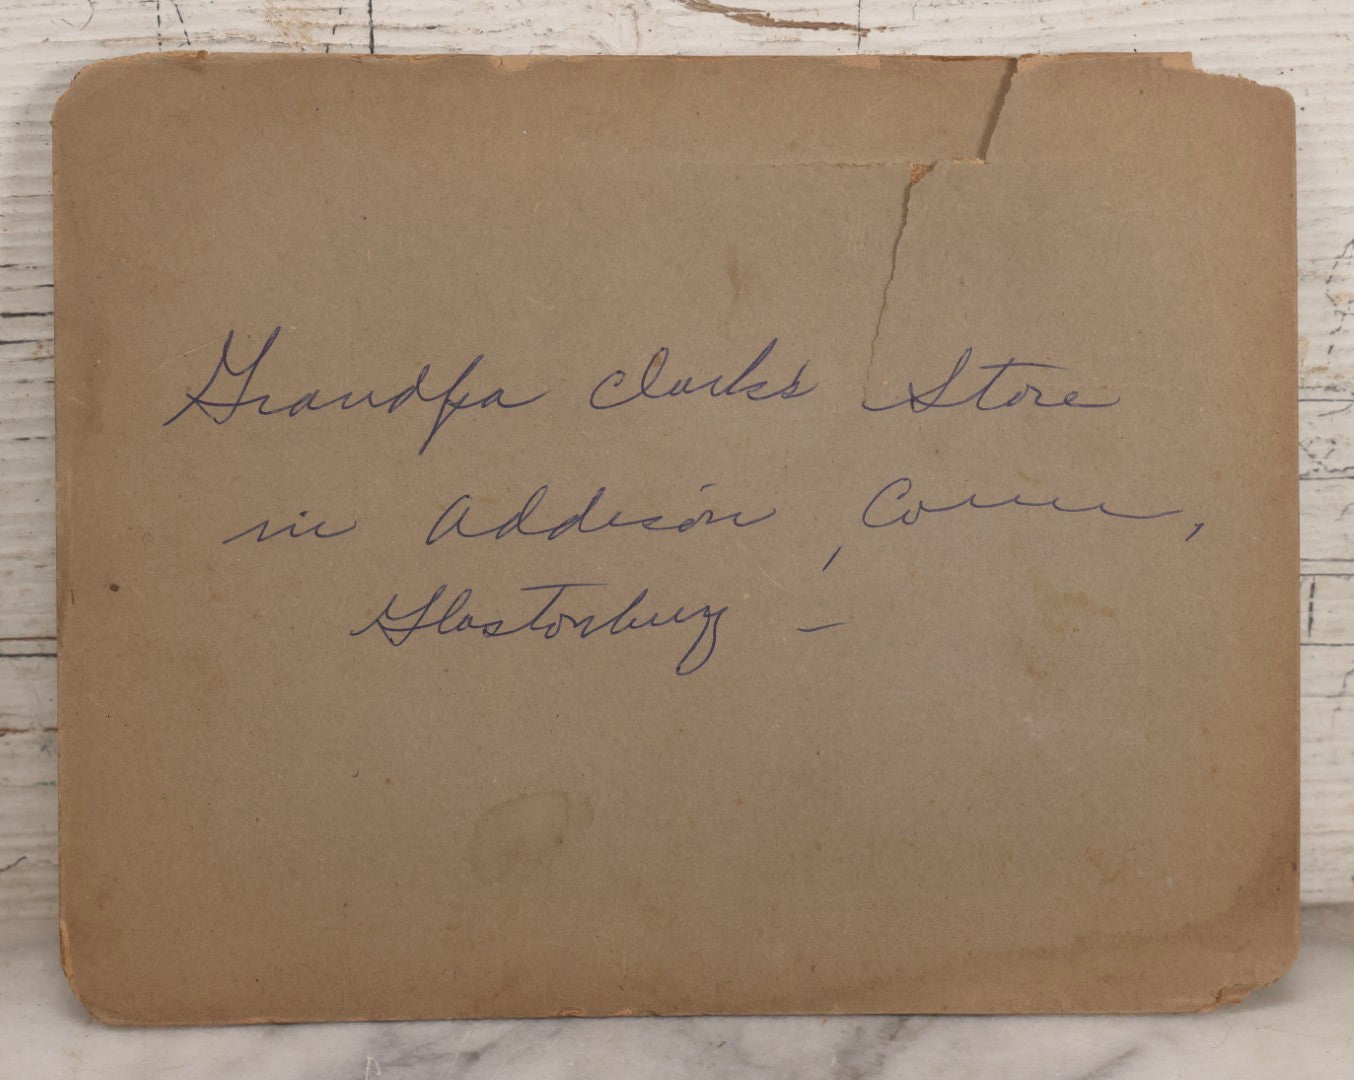 Grandpa Clark's Store
in Addison, Conn,
Glastonbury -